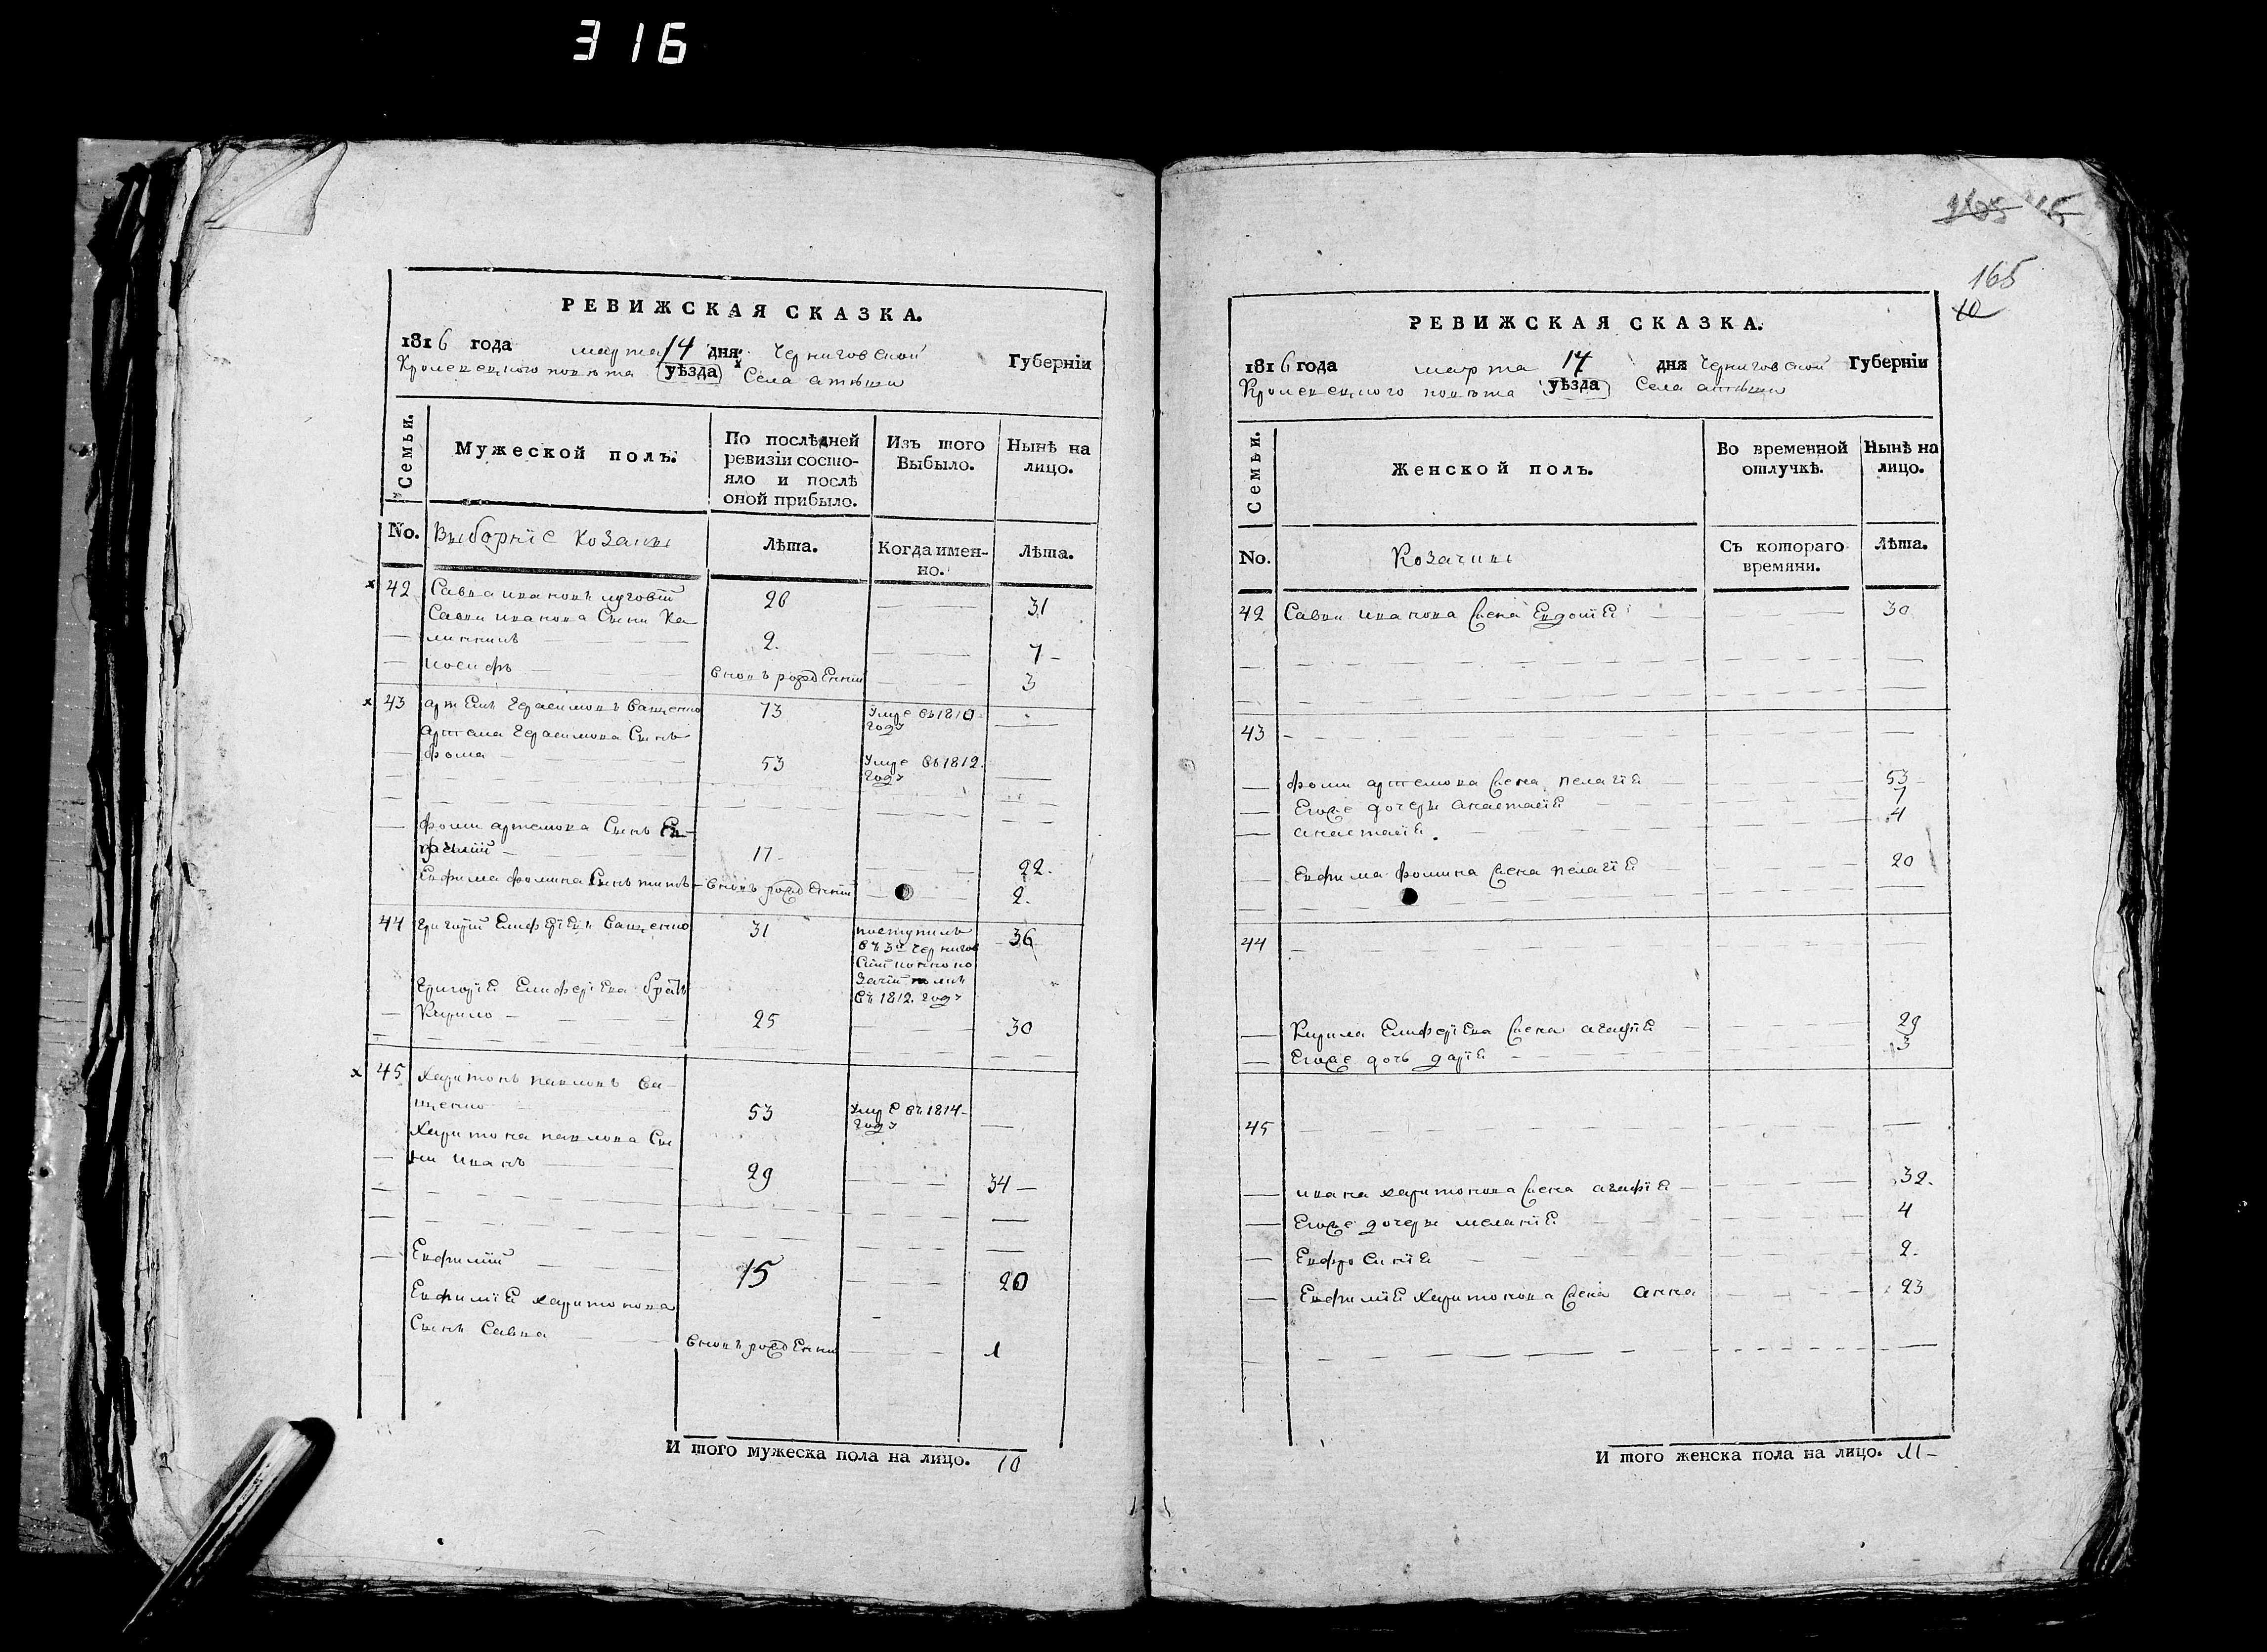 316
РЕВИЖСКАЯ СКАЗКА.
1816 года марта 14 дня Черниговской Губерніи
Кролевецкого повѣта уѣзда Села атюши
Семьи.
Мужеской полъ.
По послѣдней ревизіи состояло и послѣ оной прибыло.
Изъ того Выбыло.
Нынѣ на лицо.
No.
Выборніе козаки
Лѣта.
Когда именно.
Лѣта.
42 Савка ивановъ луговій 26 31
Савки иванова Сыни Ка
линникъ 2. 7
иосифъ вновъ рожденній 3
43 артемъ Герасимовъ Ващенко 73 умре въ 1810 году
артема Герасимова Синъ
фома 53 умре въ 1812. году
фоми артемова Синъ Ев
фимій 17 22.
Евфима фомина Синъ титъ вновъ рожденній 2.
44 григорій Елиферіевъ Ващенко 31 36
поступилъ
въ 3й Чернигов
скій конно ко
зачій полкъ
въ 1812. году
Григорія Елиферіева братъ
Кирило 25 30
45 Харитонъ павловъ Ва
щенко 53 умре въ 1814 году
Харитона павлова Си
ни иванъ 29 34
Евфимій 15 20
Евфимія харитонова
Синъ Савка вновъ рожденній 1
И того мужеска пола на лицо. 10
165
10
РЕВИЖСКАЯ СКАЗКА.
1816 года марта 14 дня Черниговской Губерніи
Кролевецкого повѣта уѣзда Села атюши
Семьи.
Женской полъ.
Во временной отлучкѣ.
Нынѣ на лицо.
No.
Козачки
Съ котораго времяни.
Лѣта.
42 Савки иванова жена Евдотія 30
43
фоми артемова жена пелагія 53
Егоже дочери анастасія 7
анастасія 4
Евфима фомина жена пелагія 20
44
Кирила Елиферіева жена агафія 29
Егоже дочъ дарія 3
45
ивана харитонова жена агафія 32.
Егоже дочери меланія 4
Евфросинія 2.
Евфимія Харитонова жена анна 23
И того женска пола на лицо. 11